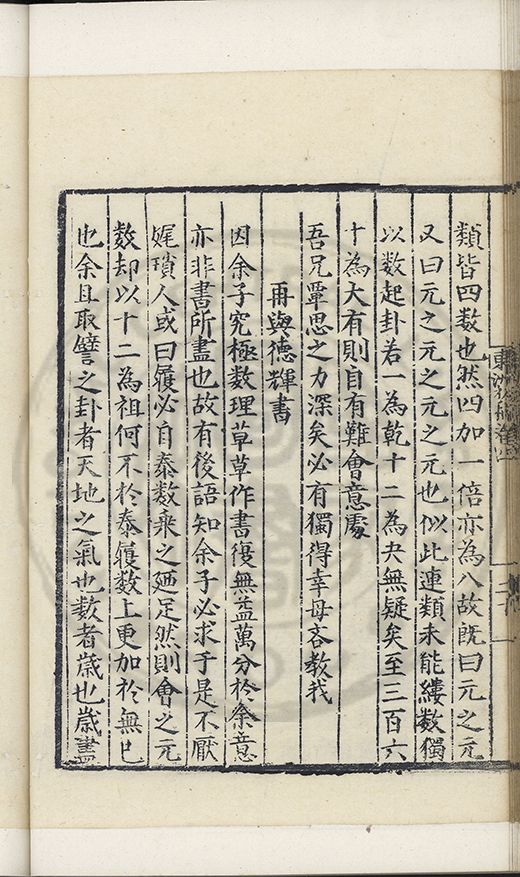 類皆四數也然四加一倍亦為八故旣曰元之元
又曰元之元之元之元也似此連類未能縷數獨
以數起卦若一為乾十二為夬無疑矣至三百六
十為大有則自有難會意處
吾兄覃思之力深矣必有獨得幸毋吝教我
再與德輝書
因余子究極數理草草作書復無益萬分於余意
亦非書所盡也故有後語知余子必求于是不厭
娓瑣人或曰履必自泰數乗之廼足然則會之元
数却以十二為祖何不於泰履数上更加於無已
也余且取譬之卦者天地之氣也数者歲也歲盡